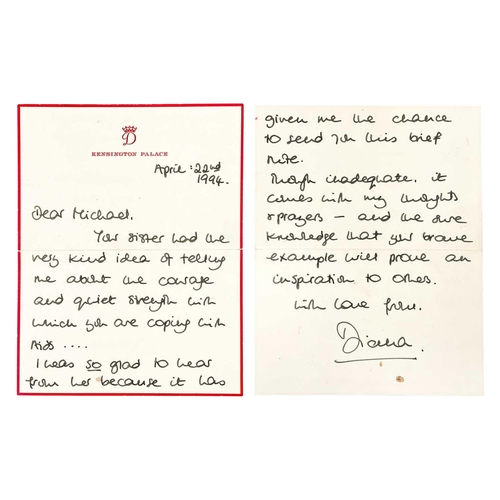 D
KENSINGTON PALACE
April: 22nd
1994.
Dear Michael,
Your sister had the
very kind idea of telling
me about the courage
and quiet strength with
which you are coping with
Aids ....
I was so glad to hear
from her because it has
given me the chance
to send you this brief
note.
Though inadequate, it
comes with my thoughts
& prayers - and the sure
knowledge that your brave
example will prove an
inspiration to others.
With love from,
Diana.